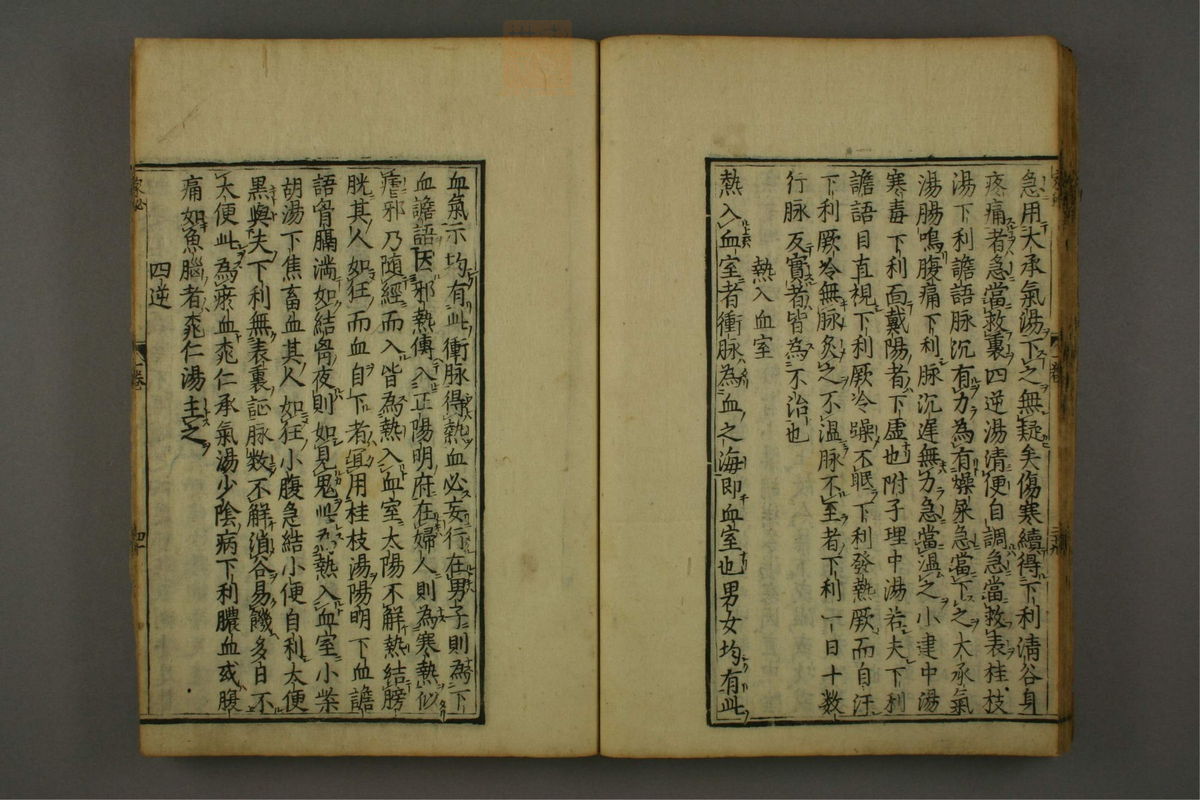 急用大承氣湯下之無疑矣傷寒續得下利清谷身
疼痛者急當救裏四逆湯清便自調急當救表桂枝
湯下利譫語脉沉有力為有燥屎急當下之大承氣
湯腸鳴腹痛下利脉沉遲無力急當溫之小建中湯
寒毒下利面戴陽者下虛也附子理中湯若夫下利
譫語目直視下利厥冷躁不眠下利發熱厥而自汗
下利厥冷無脉灸之不溫脉不至者下利一日十數
行脉反實者皆為不治也
熱入血室
熱入血室者衝脉為血之海即血室也男女均有此
血氣亦均有此衝脉得熱血必妄行在男子則為下
血譫語因邪熱傳入正陽明府在婦人則為寒熱似
瘧邪乃随經而入皆為熱入血室太陽不解熱結膀
胱其人如狂而血自下者宜用桂枝湯陽明下血譫
語胷膈滿如結胷夜則如見鬼此為熱入血室小柴
胡湯下焦畜血其人如狂小腹急結小便自利大便
黒與夫下利無表裏証脉数不解消谷易饑多日不
大便此為瘀血桃仁承氣湯少陰病下利膿血或腹
痛如魚腦者桃仁湯主之
四逆